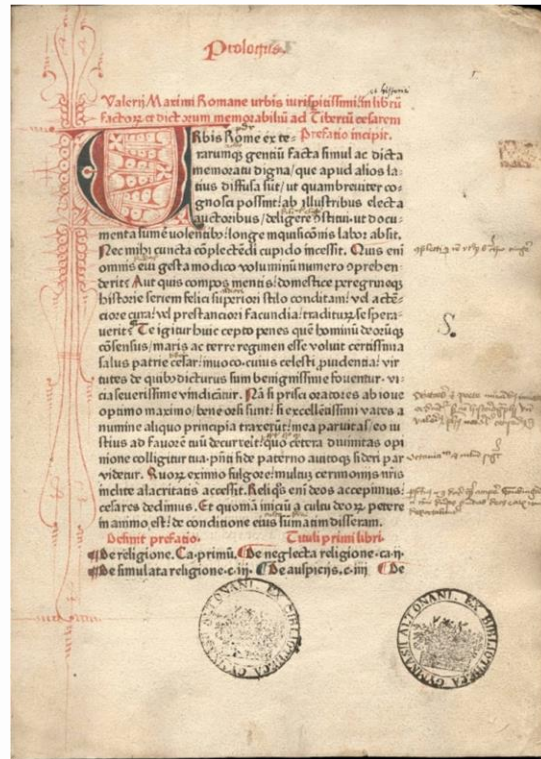 Prologus.
Valerij Maximi Romane urbis iurisp̄itissimi: in librū
factoꝝ et dictorum memorabiliū ad Tiberiū cesarem
Prefatio incipit.
URbis Rome exte-
rarumqꝫ gentiū facta simul ac dicta
memoratu digna/ que apud alios la-
tius diffusa sūt/ ut quam breuiter co-
gnosci possint: ab illustribus electa
auctoribus/ deligere ꝯstitui: ut docu-
menta sumē uolentibꝰ: longe īquisitiōis labor absit.
Nec mihi cuncta cōplectēdi cupido incessit. Quis eni
omnis eui gesta modico voluminū numero ꝯprehen-
derit? Aut quis compos mentis: domestice peregrineqꝫ
historie seriem felici superiori stilo conditam: vel actē-
tiore cura: vel prestanciori facundia: traditur̄ se spera-
uerit? Te igitur huic cepto penes quē hominū deorūqꝫ
cōsensus/ maris ac terre regimen esse voluit certissima
salus patrie cesar: inuoco. cuius celesti ꝓuidentia: vir
tutes de quibꝰ dicturus sum benignissime fouentur. vi-
cia seuerissime vindicātur. Nā si prisci oratores ab ioue
optimo maximo/ bene orsi sunt: si excellētissimi vates a
numine aliquo principia traxerūt: mea paruitas/ eo iu
stius ad fauorē tuū decurrerit: quo cetera diuinitas opi
nione colligitur tua. p̄nti fide paterno auitoqꝫ sideri par
videtur. Quoꝝ eximio fulgore: multū cerimoniis nr̄is
inclite alacritatis accessit. Reliq̄s eni deos accepimus:
cesares dedimus. Et quoniā iniciū a cultu deoꝝ petere
in animo est: de conditione eius sumatim disseram.
Definit prefatio. Tituli primi libri.
De religione. Ca. primū. De neglecta religione. ca. ij.
De simulata religione. c. iij. De auspicijs. c. iiij De
S.
EX BIBLIOTHECA GYMNASII ALTONANI.
EX BIBLIOTHECA GYMNASII ALTONANI.